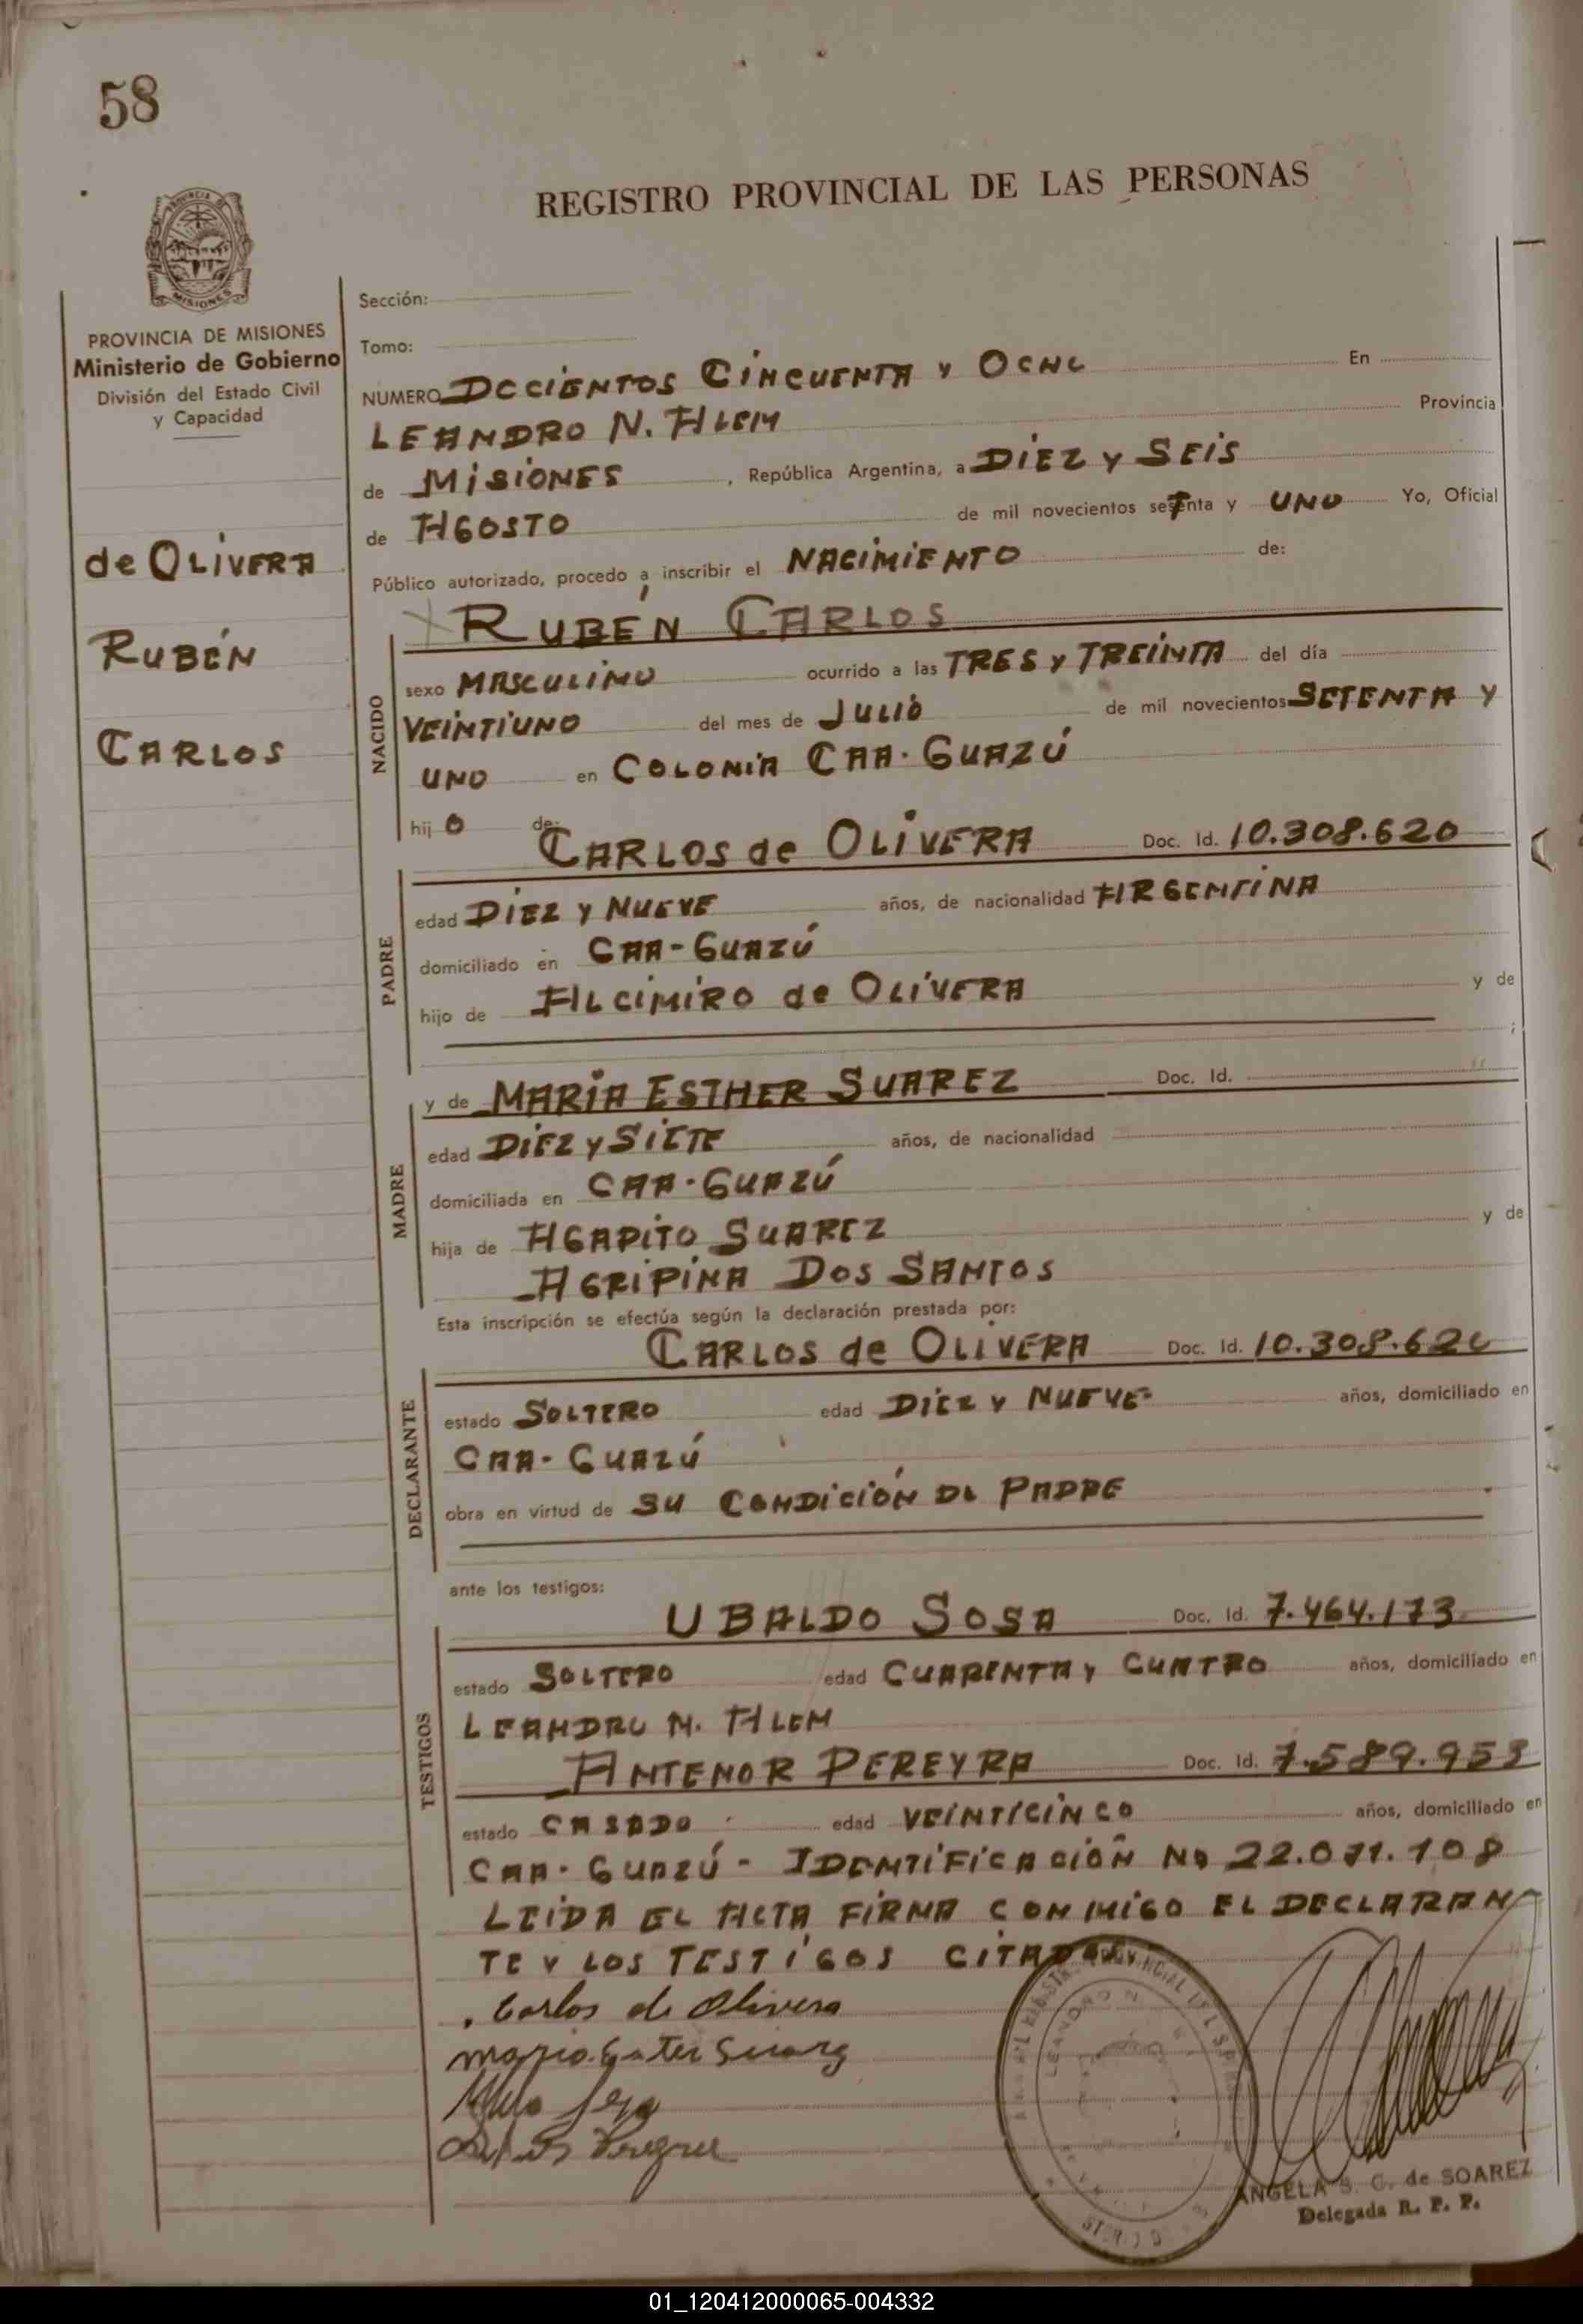 58
REGISTRO PROVINCIAL DE LAS PERSONAS
PROVINCIA DE MISIONES
Ministerio de Gobierno
División del Estado Civil
y Capacidad
de OLIVERA
RUBÉN
CARLOS
Sección:
Tomo:
NÚMERO DOCIENTOS CINCUENTA Y OCHO En
LEANDRO N. ALEM Provincia
de MISIONES, República Argentina, a DIEZ Y SEIS
de AGOSTO de mil novecientos setenta y UNO Yo, Oficial
Público autorizado, procedo a inscribir el NACIMIENTO de:
NACIDO
RUBÉN CARLOS
sexo MASCULINO ocurrido a las TRES Y TREINTA del día
VEINTIUNO del mes de JULIO de mil novecientos SETENTA Y
UNO en COLONIA CAA-GUAZÚ
hij O de:
PADRE
CARLOS de OLIVERA Doc. Id. 10.308.620
edad DIEZ Y NUEVE años, de nacionalidad ARGENTINA
domiciliado en CAA-GUAZÚ
hijo de ALCIMIRO de OLIVERA y de
;
MADRE
y de MARIA ESTHER SUAREZ Doc. Id.
edad DIEZ Y SIETE años, de nacionalidad
domiciliada en CAA-GUAZÚ
hija de AGAPITO SUAREZ y de
AGRIPINA DOS SANTOS
Esta inscripción se efectúa según la declaración prestada por:
DECLARANTE
CARLOS de OLIVERA Doc. Id. 10.308.620
estado SOLTERO edad DIEZ Y NUEVE años, domiciliado en
CAA-GUAZÚ
obra en virtud de SU CONDICIÓN DE PADRE
ante los testigos:
TESTIGOS
UBALDO SOSA Doc. Id. 7.464.173
estado SOLTERO edad CUARENTA Y CUATRO años, domiciliado en
LEANDRO N. ALEM
ANTENOR PEREYRA Doc. Id. 7.589.953
estado CASADO edad VEINTICINCO años, domiciliado en
CAA-GUAZÚ - IDENTIFICACIÓN No 22.071.108
LEIDA EL ACTA FIRMA CONMIGO EL DECLARAN
TE Y LOS TESTIGOS CITADOS
Carlos de Olivera
LEANDRO N.
ANGELA S. C. de SOAREZ
Delegada R. P. P.
01_120412000065-004332